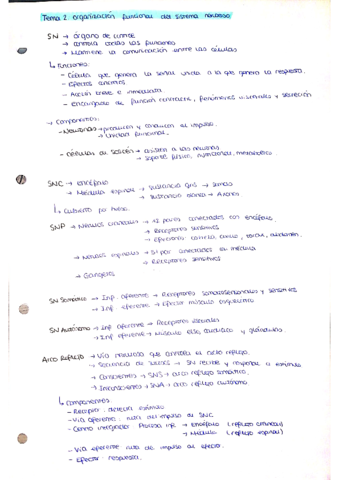 Tema 2 organización funcional del sistema nervioso
SN → órgano de
→ controla todas las funciones
→ Mantiene la comunicación entre las células
↳ Funciones:
- Célula que genera la señal unida a la que genera la respuesta.
- Efectos
- Acción breve e inmediata
- Encargado de función contráctil, fenómenos viscerales y secreción
→ Componentes:
- Neuronas → producen y conducen el impulso.
→ Unidad funcional.
- células de sostén → asisten a las neuronas
→ Soporte físico, nutricional, metabólico.
SNC → Encéfalo
→ Médula espinal → Sustancia gris → Somas
→ Sustancia blanca → Axones
↳ Cubierto por hueso.
SNP → Nervios craneales → 12 pares conectados con encéfalo
→ Receptores sensitivos
→ Efectores
→ Nervios espinales → 31 par conectados a médula
→ Receptores sensitivos
→ Ganglios
SN Somático → Inf. aferente → Receptores somatosensoriales y
→ Inf. eferente → Efector músculo esquelético
SN Autónomo → Inf aferente → Receptores viscerales
→ Inf eferente → Músculo liso, cardíaco y glándulas
Arco Reflejo → Vía neuronal que controla el acto reflejo.
→ Secuencia de → SN recibe y responde a estímulo
→ Componentes → SNS → arco reflejo somático.
→ → SNA → arco reflejo autónomo.
↳ Componentes:
- Receptor: detecta estímulo
- Vía aferente: ruta del impulso al SNC
- Centro integrador: Procesa inf. → Encéfalo (reflejo craneal)
→ Médula (reflejo espinal)
- Vía eferente: ruta de impulso al efector.
- Efector: respuesta.